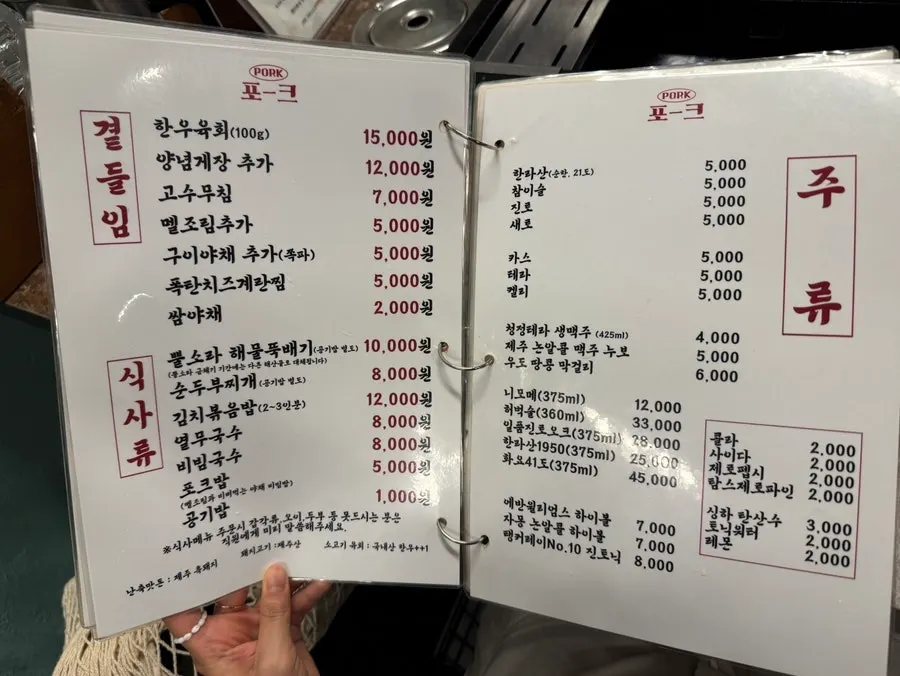 PORK
포크
곁들임
한우육회(100g) 15,000원
양념게장 추가 12,000원
고수무침 7,000원
멜조림추가 5,000원
구이야채 추가(쪽파) 5,000원
폭탄치즈계란찜 5,000원
쌈야채 2,000원
식사류
뿔소라 해물뚝배기(공기밥 별도) 10,000원
(뿔소라 금채기 기간에는 다른 해산물로 대체됩니다)
순두부찌개(공기밥 별도) 8,000원
김치볶음밥(2~3인분) 12,000원
열무국수 8,000원
비빔국수 8,000원
포크밥 5,000원
(멜조림과 비벼먹는 야채 비빔밥)
공기밥 1,000원
※식사메뉴 주문시 갑각류, 오이, 두부 등 못드시는 분은
직원에게 미리 말씀해주세요.
난축맛돈 : 제주 흑돼지 돼지고기 : 제주산 소고기 육회 : 국내산 한우++1
PORK
포크
주류
한라산(순한, 21도) 5,000
참이슬 5,000
진로 5,000
새로 5,000
카스 5,000
테라 5,000
켈리 5,000
청정테라 생맥주 (425ml) 4,000
제주 논알콜 맥주 누보 5,000
우도 땅콩 막걸리 6,000
니모메(375ml) 12,000
허벅술(360ml) 33,000
일품진로오크(375ml) 28,000
한라산1950(375ml) 25,000
화요41도(375ml) 45,000
에반윌리엄스 하이볼 7,000
자몽 논알콜 하이볼 7,000
탱커레이No.10 진토닉 8,000
콜라 2,000
사이다 2,000
제로펩시 2,000
탐스제로파인 2,000
싱하 탄산수 3,000
토닉워터 2,000
레몬 2,000